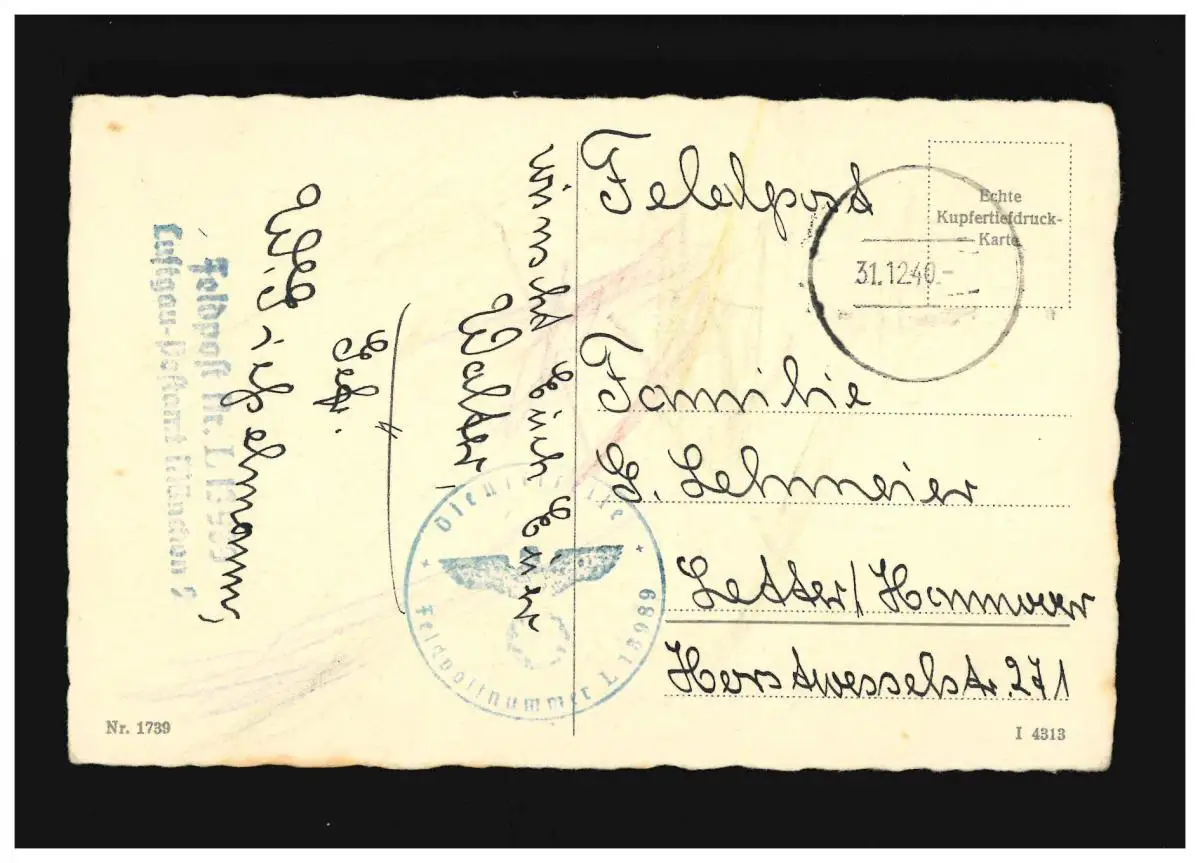 Feldpost
Echte
Kupfertiefdruck-
Karte
31.12.40.-
Familie
G. Lehmeier
Letter/Hannover
Horstwesselstr. 271
wünscht Euch Euer
Walter
Gefr.
Feldpost Nr. L 13989
Luftgau-Postamt München
Dienststelle
Feldpostnummer L 13989
Nr. 1739
I 4313